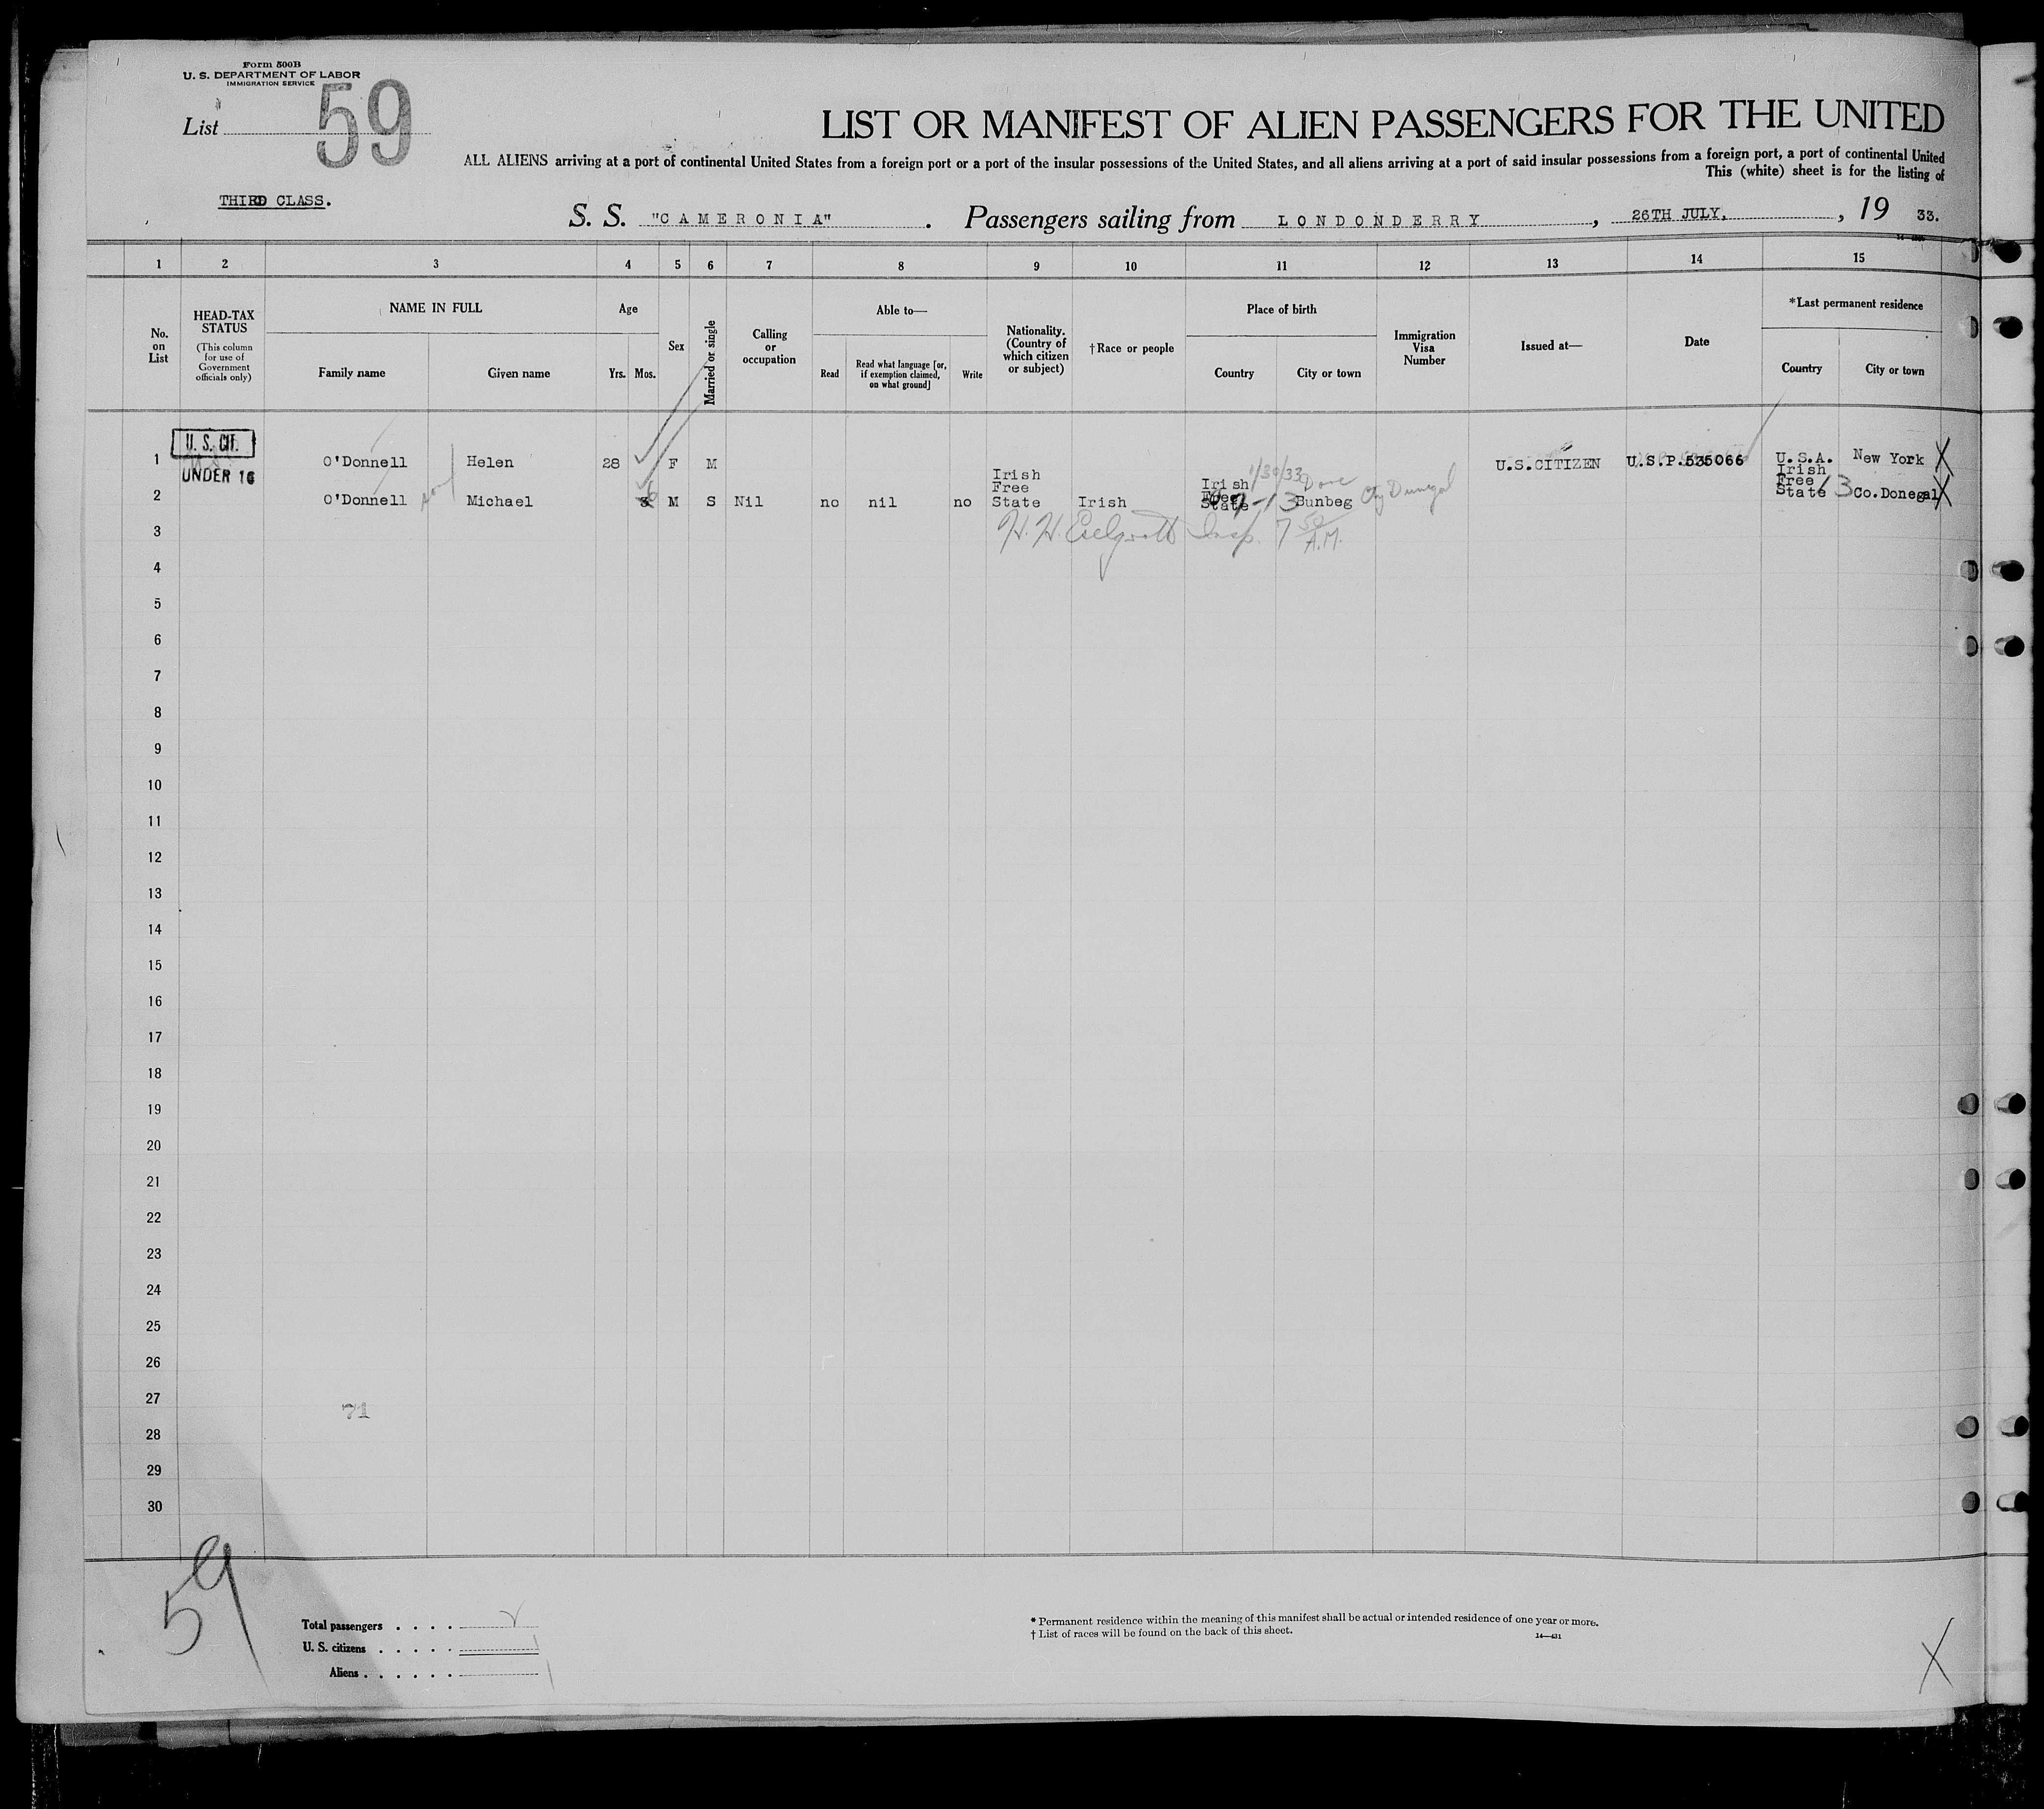 Form 500B
U. S. DEPARTMENT OF LABOR
IMMIGRATION SERVICE
List 59
LIST OR MANIFEST OF ALIEN PASSENGERS FOR THE UNITED
ALL ALIENS arriving at a port of continental United States from a foreign port or a port of the insular possessions of the United States, and all aliens arriving at a port of said insular possessions from a foreign port, a port of continental United
This (white) sheet is for the listing of
THIRD CLASS.
S. S. "CAMERONIA". Passengers sailing from LONDONDERRY, 26TH JULY, , 19 33.
1 2 3 4 5 6 7 8 9 10 11 12 13 14 15
No. on List
HEAD-TAX STATUS
(This column for use of Government officials only)
NAME IN FULL
Family name
Given name
Age
Yrs. Mos.
Sex
Married or single
Calling or occupation
Able to—
Read
Read what language [or, if exemption claimed, on what ground]
Write
Nationality. (Country of which citizen or subject)
†Race or people
Place of birth
Country
City or town
Immigration Visa Number
Issued at—
Date
*Last permanent residence
Country
City or town
1 U. S. CIT. O'Donnell Helen 28 F M U.S.CITIZEN U.S.P.535066 U.S.A. New York X
2 UNDER 16 O'Donnell son Michael 6 M S Nil no nil no Irish Free State Irish Irish Free State Bunbeg 1/30/33 Irish Free State 3 Co.Donegal X
3 H. H. Insp. 7 50 A.M.
4
5
6
7
8
9
10
11
12
13
14
15
16
17
18
19
20
21
22
23
24
25
26
27
71
28
29
30
59
Total passengers . . . . 2
U. S. citizens . . . . . 1
Aliens . . . . . . 1
* Permanent residence within the meaning of this manifest shall be actual or intended residence of one year or more.
† List of races will be found on the back of this sheet.
14—431
X